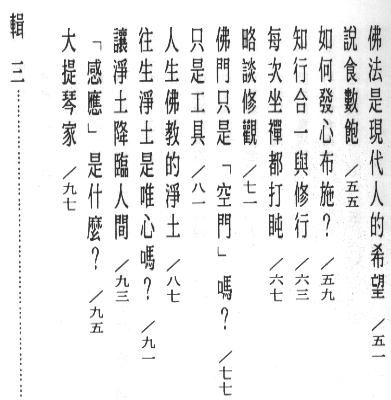 佛法是現代人的希望 /五一
說食數飽 /五五
如何發心布施？ /五九
知行合一與修行 /六三
每次坐禪都打盹 /六七
略談修觀 /七一
佛門只是「空門」嗎？ /七七
只是工具 /八一
人生佛教的淨土 /八七
往生淨土是唯心嗎？ /九一
讓淨土降臨人間 /九三
「感應」是什麼？ /九五
大提琴家 /九七
輯三……………………